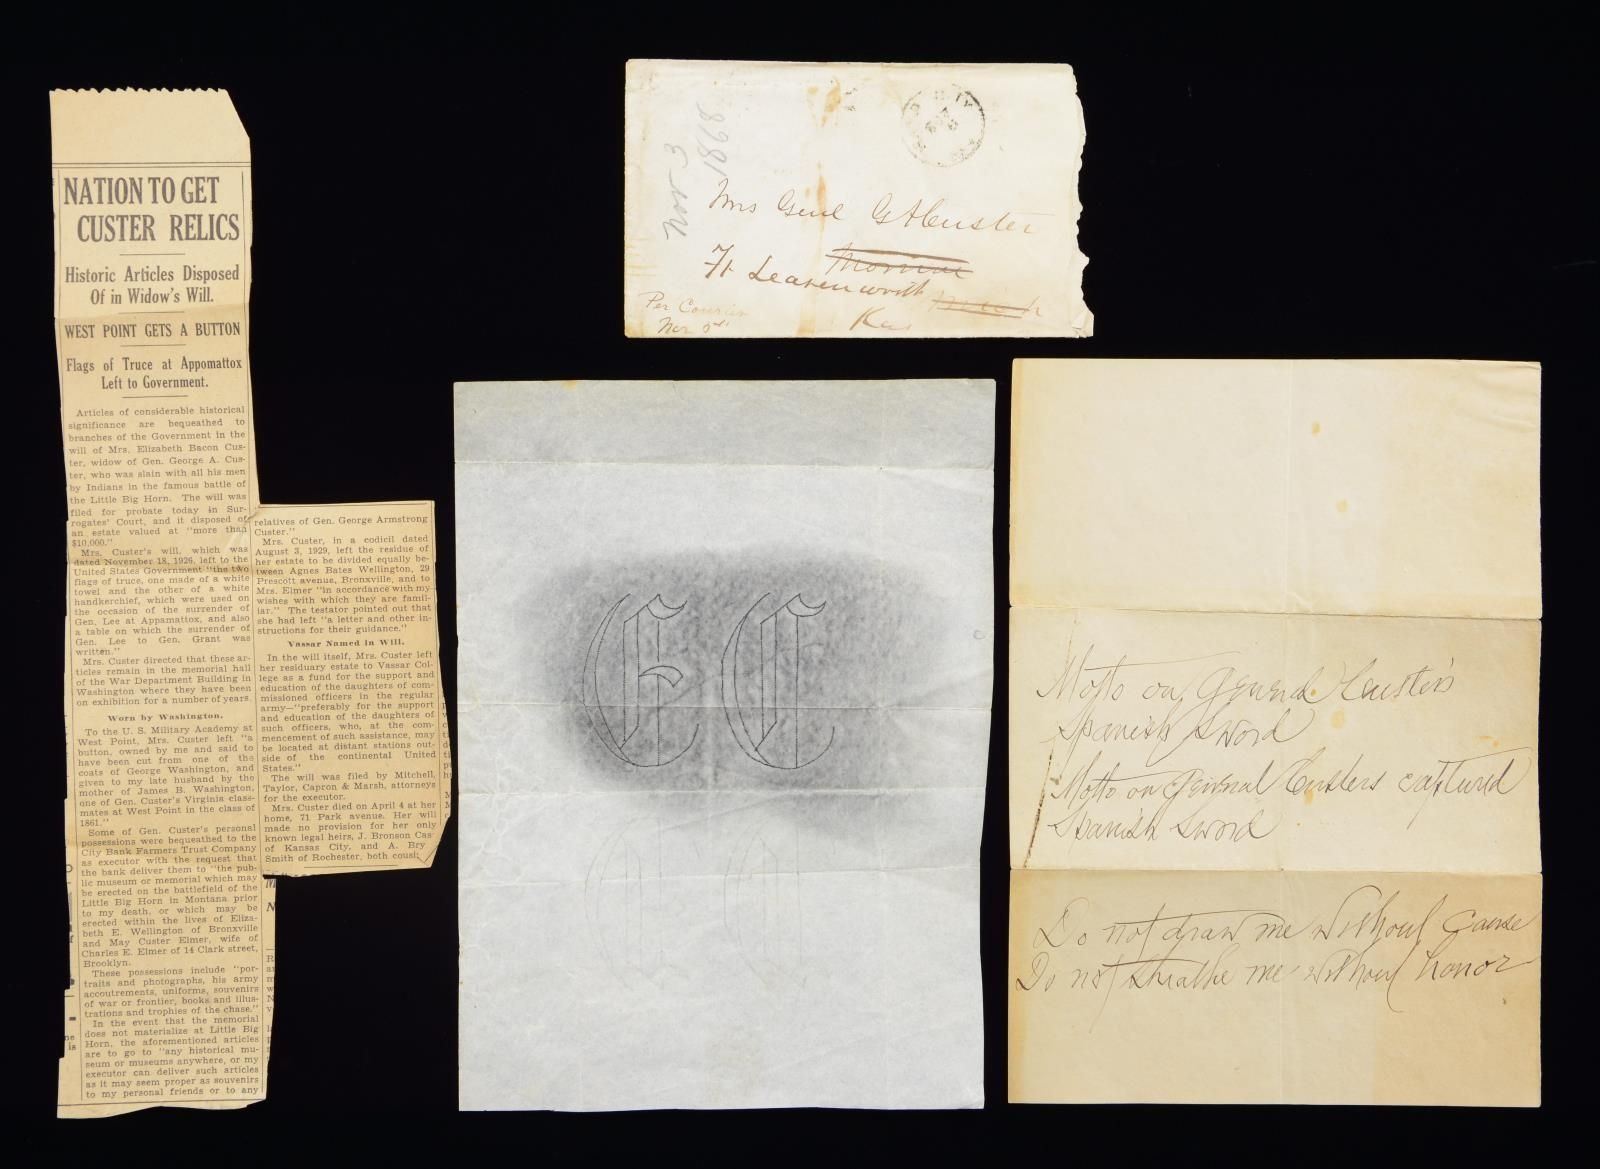 NATION TO GET
CUSTER RELICS
Historic Articles Disposed
Of in Widow's Will.
WEST POINT GETS A BUTTON
Flags of Truce at Appomattox
Left to Government.
Articles of considerable historical
significance are bequeathed to
branches of the Government in the
will of Mrs. Elizabeth Bacon Cus-
ter, widow of Gen. George A. Cus-
ter, who was slain with all his men
by Indians in the famous battle of
the Little Big Horn. The will was
filed for probate today in Sur-
rogates' Court, and it disposed of
an estate valued at "more than
$10,000."
Mrs. Custer's will, which was
dated November 18, 1926, left to the
United States Government "the two
flags of truce, one made of a white
towel and the other of a white
handkerchief, which were used on
the occasion of the surrender of
Gen. Lee at Appamattox, and also
a table on which the surrender of
Gen. Lee to Gen. Grant was
written."
Mrs. Custer directed that these ar-
ticles remain in the memorial hall
of the War Department Building in
Washington where they have been
on exhibition for a number of years.
Worn by Washington.
To the U. S. Military Academy at
West Point, Mrs. Custer left "a
button, owned by me and said to
have been cut from one of the
coats of George Washington, and
given to my late husband by the
mother of James B. Washington,
one of Gen. Custer's Virginia class-
mates at West Point in the class of
1861."
Some of Gen. Custer's personal
possessions were bequeathed to the
City Bank Farmers Trust Company
as executor with the request that
the bank deliver them to "the pub-
lic museum or memorial which may
be erected on the battlefield of the
Little Big Horn in Montana prior
to my death, or which may be
erected within the lives of Eliza-
beth E. Wellington of Bronxville
and May Custer Elmer, wife of
Charles E. Elmer of 14 Clark street,
Brooklyn.
These possessions include "por-
traits and photographs, his army
accoutrements, uniforms, souvenirs
of war or frontier, books and illus-
trations and trophies of the chase."
In the event that the memorial
does not materialize at Little Big
Horn, the aforementioned articles
are to go to "any historical mu-
seum or museums anywhere, or my
executor can deliver such articles
as it may seem proper as souvenirs
to my personal friends or to any
relatives of Gen. George Armstrong
Custer."
Mrs. Custer, in a codicil dated
August 3, 1929, left the residue of
her estate to be divided equally be-
tween Agnes Bates Wellington, 29
Prescott avenue, Bronxville, and to
Mrs. Elmer "in accordance with my
wishes with which they are famil-
iar." The testator pointed out that
she had left "a letter and other in-
structions for their guidance."
Vassar Named in Will.
In the will itself, Mrs. Custer left
her residuary estate to Vassar Col-
lege as a fund for the support and
education of the daughters of com-
missioned officers in the regular
army—"preferably for the support
and education of the daughters of
such officers, who, at the com-
mencement of such assistance, may
be located at distant stations out-
side of the continental United
States."
The will was filed by Mitchell,
Taylor, Capron & Marsh, attorneys
for the executor.
Mrs. Custer died on April 4 at her
home, 71 Park avenue. Her will
made no provision for her only
known legal heirs, J. Bronson Cas
of Kansas City, and A. Bry
Smith of Rochester, both cousi
Nov 3
1868
Mrs Genl G A Custer
Monroe
Ft Leavenworth
Kas
Per Courier
Nov
E C
Motto on General Custer's
Spanish Sword
Motto on General Custers captured
Spanish sword
Do not draw me without cause
Do not sheathe me without honor